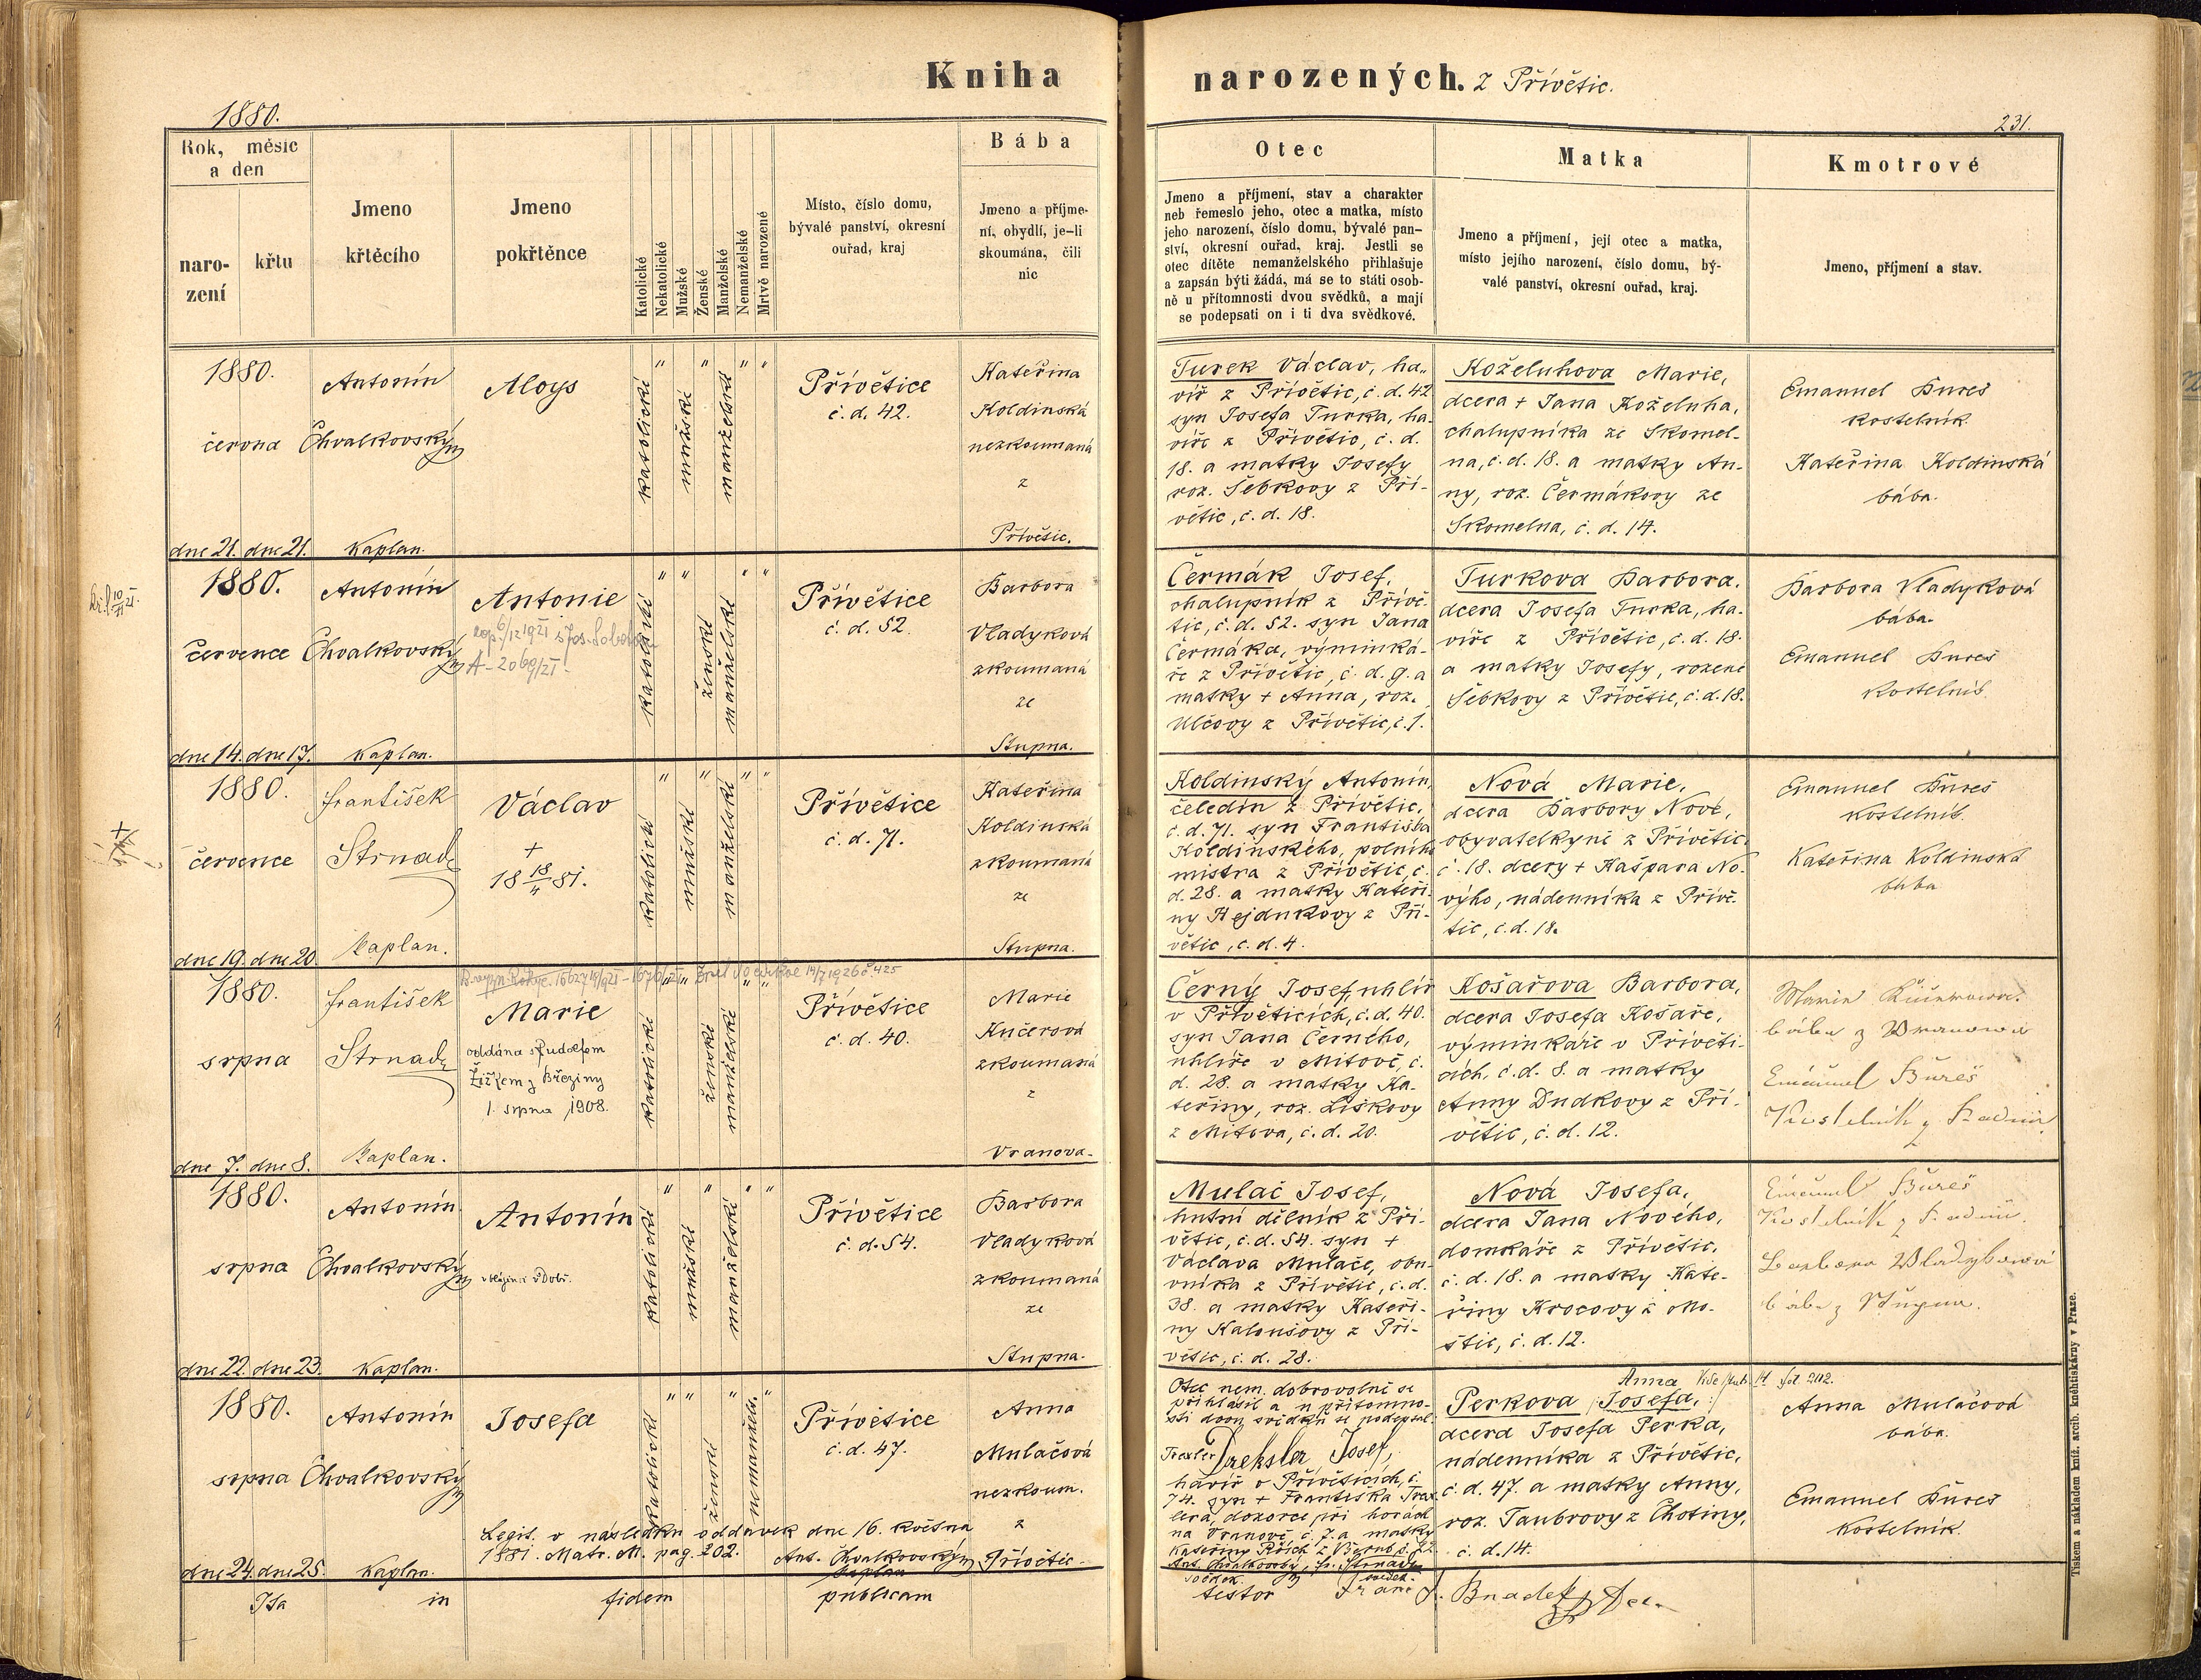 Kniha narozených. z Přívětic.
1880.
231.
Rok, měsíc a den
narození
křtu
Jmeno křtěcího
Jmeno pokřtěnce
Katolické
Nekatolické
Mužské
Ženské
Manželské
Nemanželské
Mrtvě narozené
Místo, číslo domu,
bývalé panství, okresní
ouřad, kraj
Bába
Jmeno a příjme-
ní, obydlí, je-li
skoumána, čili
nic
Otec
Jmeno a příjmení, stav a charakter
neb řemeslo jeho, otec a matka, místo
jeho narození, číslo domu, bývalé pan-
ství, okresní ouřad, kraj. Jestli se
otec dítěte nemanželského přihlašuje
a zapsán býti žádá, má se to státi osob-
ně u přítomnosti dvou svědků, a mají
se podepsati on i ti dva svědkové.
Matka
Jmeno a příjmení, její otec a matka,
místo jejího narození, číslo domu, bý-
valé panství, okresní ouřad, kraj.
Kmotrové
Jmeno, příjmení a stav.
1880.
června
dne 21. dne 21.
Antonín
Chvalkovský
Kaplan.
Aloys
katolické
mužské
manželské
Přívětice
č. d. 42.
Kateřina
Koldinská
nezkoumaná
z
Přívětic.
Turek Václav, ha„
víř z Přívětic, č. d. 42
syn Josefa Turka, ha-
víře z Přívětic, č. d.
18. a matky Josefy
roz. Šebkovy z Pří-
větic, č. d. 18.
Koželuhova Marie,
dcera + Jana Koželuha,
chalupníka ze Skomel-
na, č. d. 18. a matky An-
ny, roz. Čermákovy ze
Skomelna, č. d. 14.
Emanuel Bureš
kostelník.
Kateřina Koldinská
bába.
1880.
července
dne 14. dne 17.
Antonín
Chvalkovský
Kaplan.
Antonie
katolické
ženské
manželské
Přívětice
č. d. 52.
Barbora
Vladyková
zkoumaná
ze
Stupna.
Čermák Josef,
chalupník z Přívě-
tic, č. d. 52. syn Jana
Čermáka, výminká-
ře z Přívětic, č. d. 9. a
matky + Anna, roz.
Ulčovy z Přívětic, č. 1.
Turkova Barbora.
dcera Josefa Turka, ha-
víře z Přívětic, č. d. 18.
a matky Josefy, rozené
Šebkovy z Přívětic, č. d. 18.
Barbora Vladyková
bába.
Emanuel Bureš
kostelník.
1880.
července
dne 19. dne 20.
František
Strnad
Kaplan.
Václav
+
18 18/4 81.
katolické
mužské
manželské
Přívětice
č. d. 71.
Kateřina
Koldinská
zkoumaná
ze
Stupna.
Koldinský Antonín,
čeledín z Přívětic,
č. d. 71. syn Františka
Koldinského, polního
mistra z Přívětic, č.
d. 28. a matky Kateři-
ny Hejdukovy z Pří-
větic, č. d. 4.
Nová Marie,
dcera Barbory Nové,
obyvatelkyně z Přívětic
č. 18. dcery + Kašpara No-
výho, nádenníka z Přívě-
tic, č. d. 18.
Emanuel Bureš
kostelník.
Kateřina Koldinská
bába
1880.
srpna
dne 7. dne 8.
František
Strnad
Kaplan.
Marie
oddána s Rudolfem
Žižkem z Březiny
1. srpna 1908.
katolické
ženské
manželské
Přívětice
č. d. 40.
Marie
Kučerová
zkoumaná
z
Vranova.
Černý Josef, uhlíř
v Přívěticích, č. d. 40.
syn Jana Černého,
uhlíře v Mitově, č.
d. 28. a matky Ka-
teřiny, roz. Liškovy
z Mitova, č. d. 20.
Košařova Barbora,
dcera Josefa Košaře,
výminkáře v Přívěti-
cích, č. d. 8. a matky
Anny Dudkovy z Pří-
větic, č. d. 12.
Marie Kučerova.
bába z Wranowa
Emanuel Bureš
Kostelník z Radnic
1880.
srpna
dne 22. dne 23.
Antonín
Chvalkovský
Kaplan.
Antonín
katolické
mužské
manželské
Přívětice
č. d. 54.
Barbora
Vladyková
zkoumaná
ze
Stupna.
Mulač Josef,
hutní dělník z Pří-
větic, č. d. 54. syn +
Václava Mulače, obu-
vníka z Přívětic, č. d.
38. a matky Kateři-
ny Kaloušovy z Pří-
větic, č. d. 28.
Nová Josefa,
dcera Jana Nového,
domkáře z Přívětic,
č. d. 18. a matky Kate-
řiny Krocovy z Mo-
štic, č. d. 12.
Emanuel Bureš
Kostelník z Radnic.
Barbora Wladykowá
bába z Stupna.
1880.
srpna
dne 24. dne 25.
Antonín
Chvalkovský
Kaplan.
Josefa
katolické
ženské
nemanžels.
Přívětice
č. d. 47.
Anna
Mulačová
nezkoum.
z
Přívětic.
Legit. v následku oddavek dne 16. května
1881. Matr. M. pag. 202.
Ant. Chvalkovský
kaplan
Otec nem. dobrovolně se
přihlásil a u přítomno-
sti dvou svědků se podepsal.
Josef,
havíř v Přívěticích, č.
74. syn + Františka
dozorce při horách
na Vranově, č. 7. a matky
Ant. Chvalkovský, Fr. Strnad
svědek. svědek.
Anna
Perkova /: Josefa, :/
dcera Josefa Perka,
nádenníka z Přívětic,
č. d. 47. a matky Anny,
roz. Taubrovy z Chotiny,
č. d. 14.
Anna Mulačová
bába.
Emanuel Bureš
kostelník.
Ita in fidem publicam testor
Tiskem a nákladem kníž. arcib. knihtiskárny v Praze.